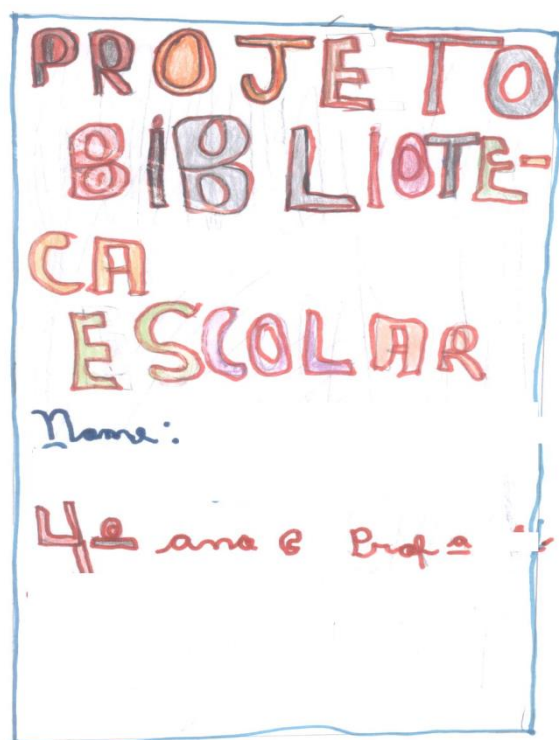 PROJETO
BIBLIOTE-
CA
ESCOLAR
Nome:
4º ano B Profª